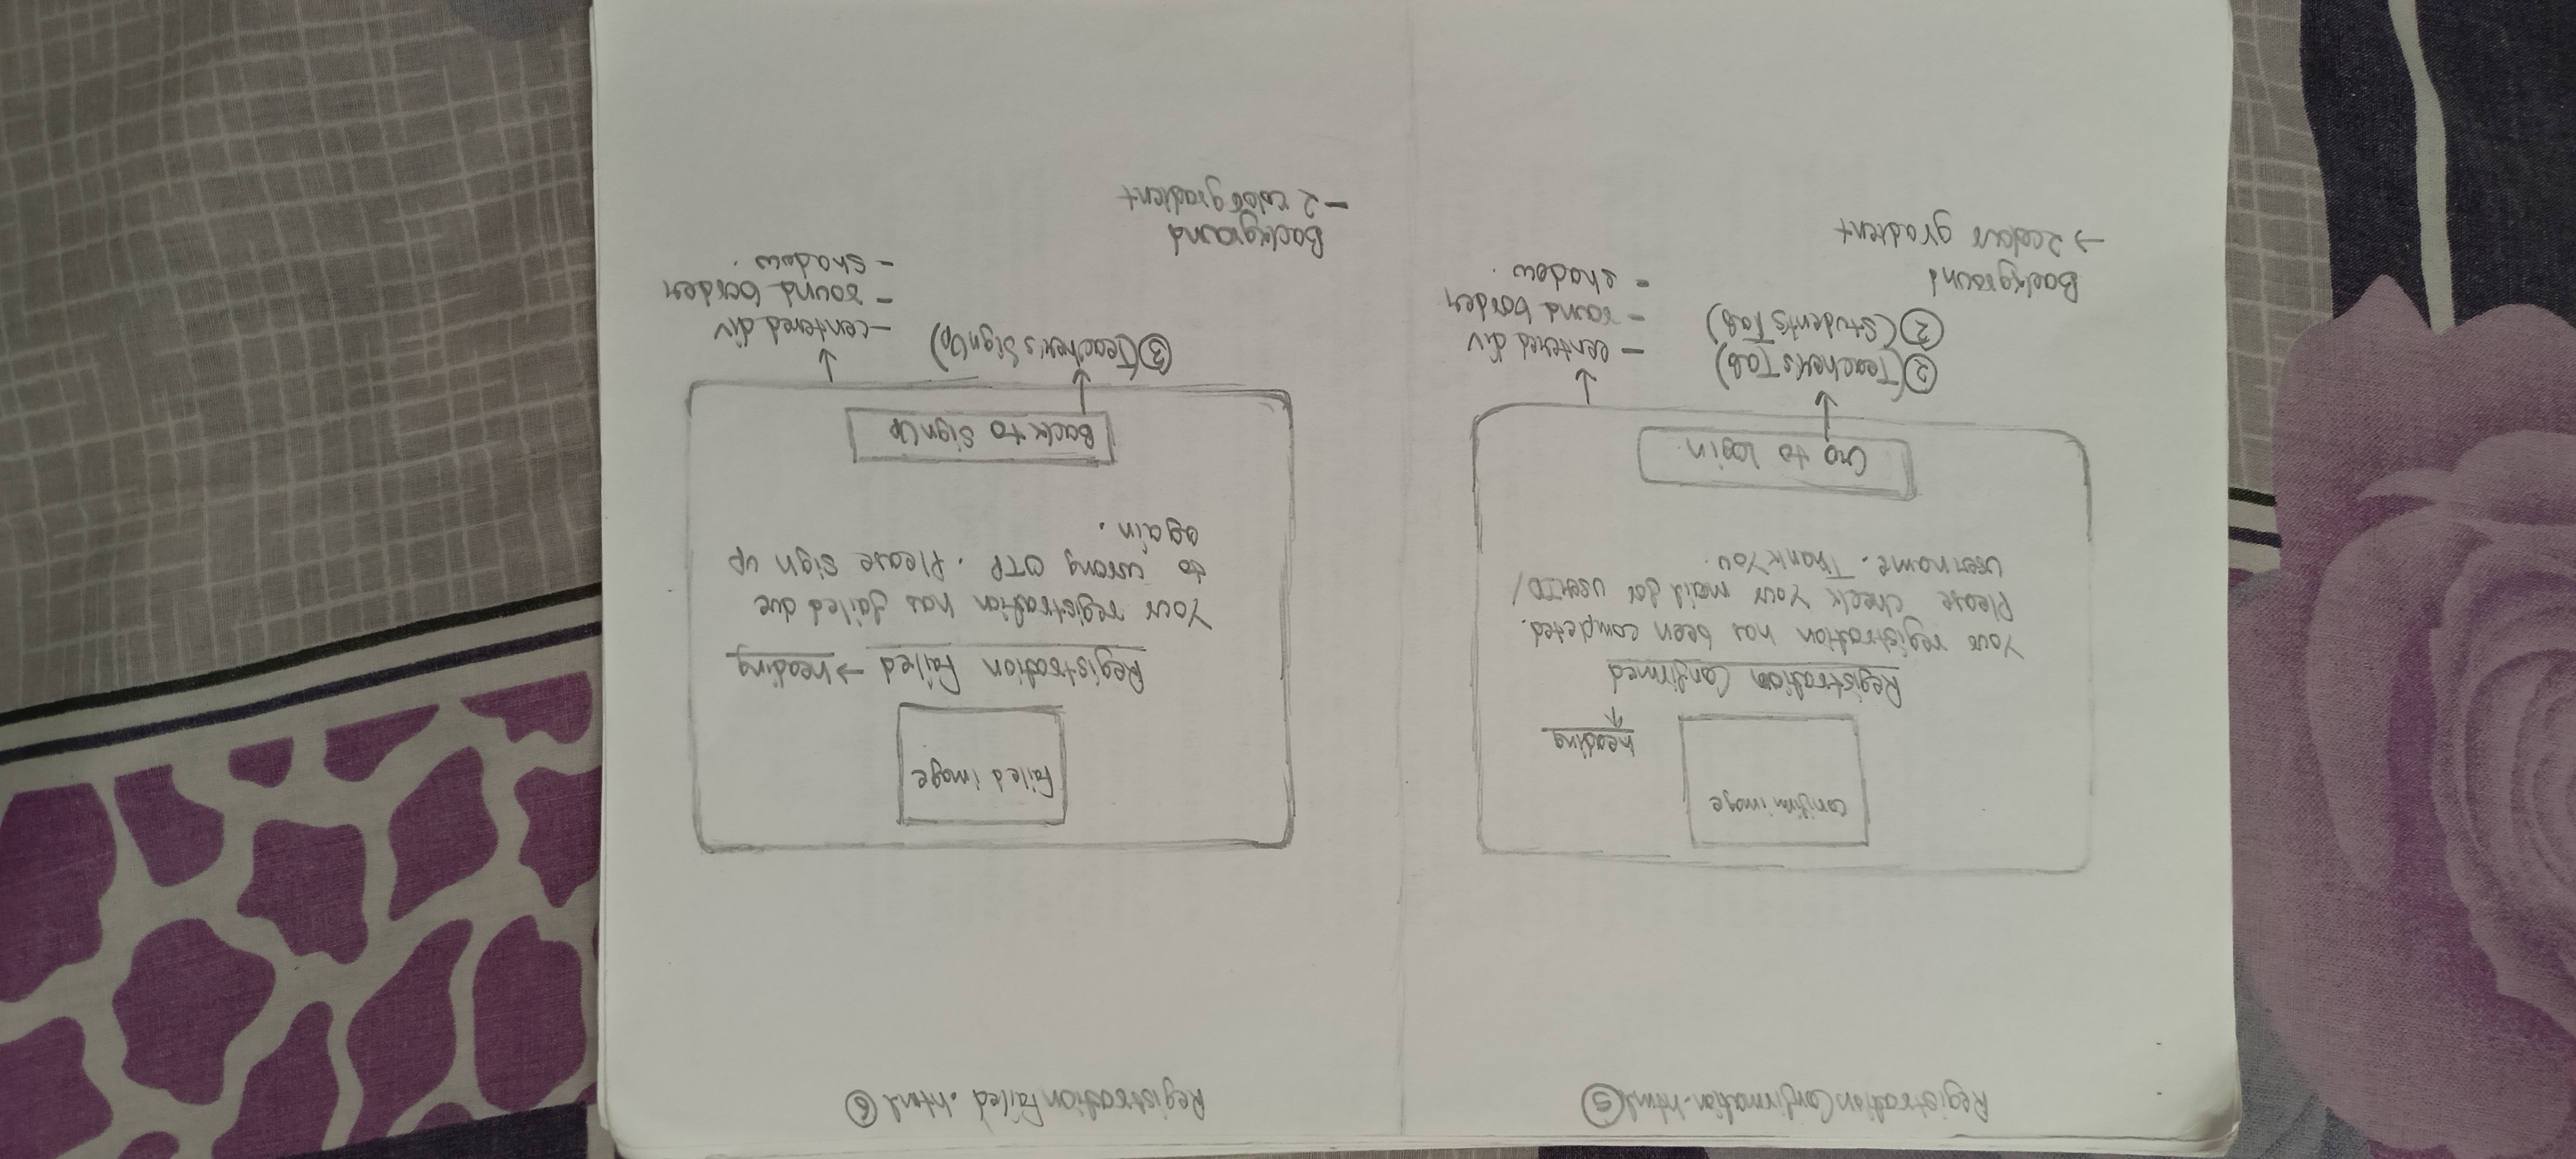 RegistrationConfirmation.html ⑤
confirm image
heading
Registration Confirmed
Your registration has been completed.
Please check your mail for userID/
username. Thank You.
Go to login
② (Teacher's Tab)
② (Student's Tab)
- centered div
- round border
- shadow.
Background
→ 2 colour gradient
RegistrationFailed.html ⑥
Failed image
Registration Failed → heading
Your registration has failed due
to wrong OTP. Please sign up
again.
Back to SignUp
③ (Teacher's SignUp)
- centered div
- round border
- shadow.
Background
- 2 color gradient